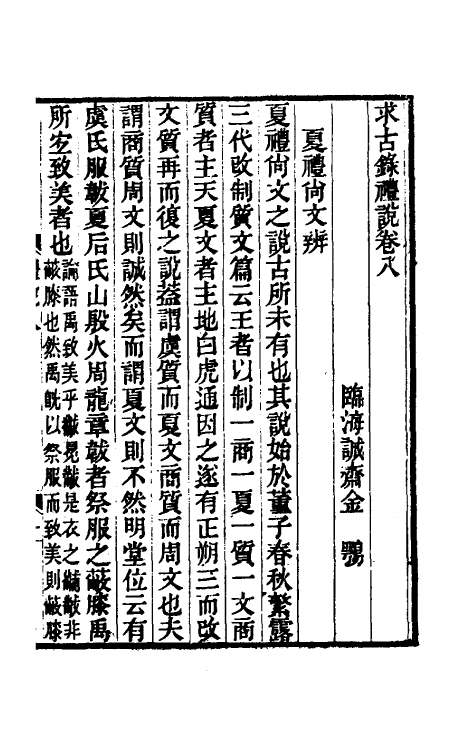 求古錄禮說卷八
臨海誠齋金 鶚
夏禮尙文辨
夏禮尙文之說古所未有也其說始於董子春秋繁露
三代改制質文篇云王者以制一商一夏一質一文商
質者主天夏文者主地白虎通因之遂有正朔三而改
文質再而復之說葢謂虞質而夏文商質而周文也夫
謂商質周文則誠然矣而謂夏文則不然明堂位云有
虞氏服韍夏后氏山殷火周龍章韍者祭服之蔽膝禹
所㝎致美者也
論語禹致美乎黻冕黻是衣之繡黻非
蔽膝也然禹旣以祭服而致美則蔽膝